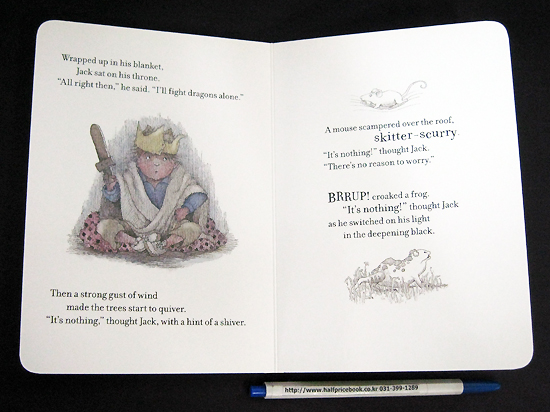 Wrapped up in his blanket,
Jack sat on his throne.
“All right then,” he said. “I’ll fight dragons alone.”
Then a strong gust of wind
made the trees start to quiver.
“It’s nothing,” thought Jack, with a hint of a shiver.
A mouse scampered over the roof,
skitter-scurry.
“It’s nothing!” thought Jack.
“There’s no reason to worry.”
BRRUP! croaked a frog.
“It’s nothing!” thought Jack
as he switched on his light
in the deepening black.
http://www.halfpricebook.co.kr 031-399-1289